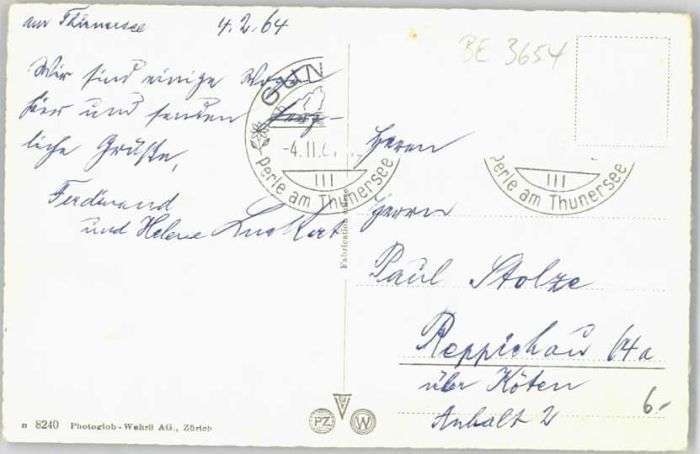 am Thunersee 4.2.64
Wir sind einige
hier und senden herz-
liche Grüße,
Ferdinand
und Helene
BE 3654
GUN
-4.II.6
III
Perle am Thunersee
III
Perle am Thunersee
Herrn
Herrn
Paul Stolze
Reppichau 64a
über Köten
Anhalt 2
6.-
n 8240 Photoglob-Wehrli AG., Zürich
PZ W